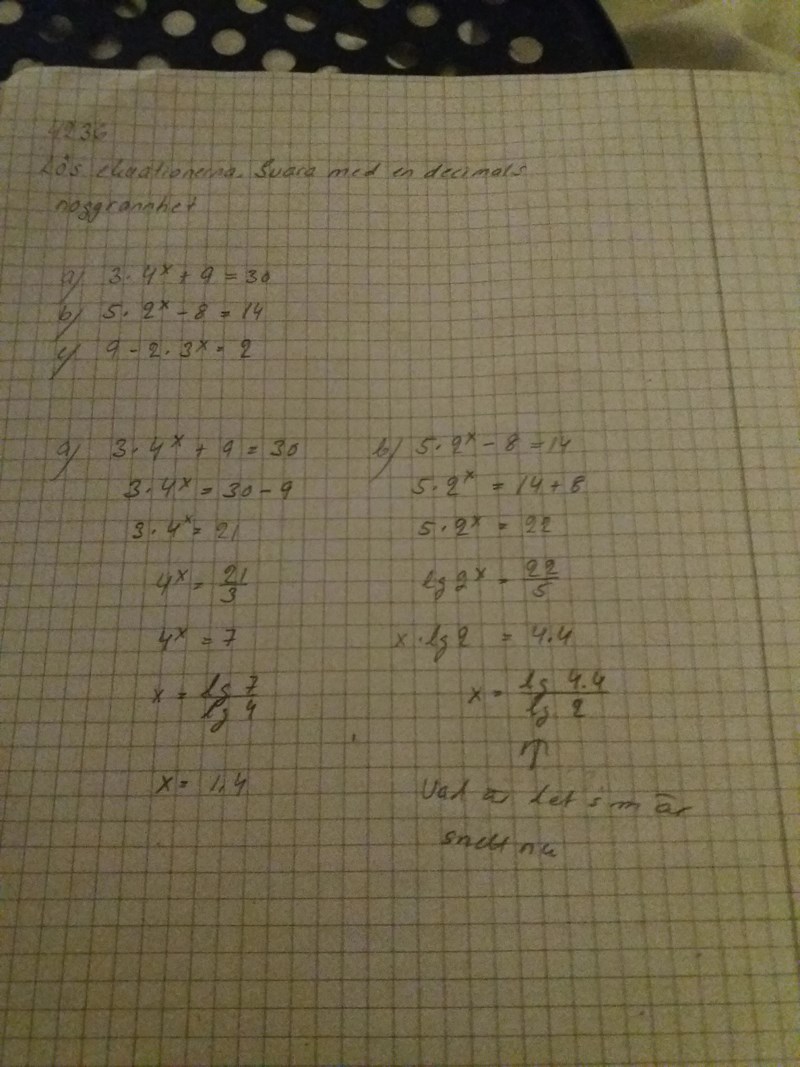 4236
Lös ekvationerna. Svara med en decimals
noggrannhet
a) 3·4ˣ + 9 = 30
b) 5·2ˣ - 8 = 14
c) 9 - 2·3ˣ = 2
a) 3·4ˣ + 9 = 30
3·4ˣ = 30 - 9
3·4ˣ = 21
4ˣ = 21/3
4ˣ = 7
x = lg 7 / lg 4
x = 1,4
b) 5·2ˣ - 8 = 14
5·2ˣ = 14 + 8
5·2ˣ = 22
lg 2ˣ = 22/5
x · lg 2 = 4.4
x = lg 4.4 / lg 2
↑
Vad är det som är
snett nu